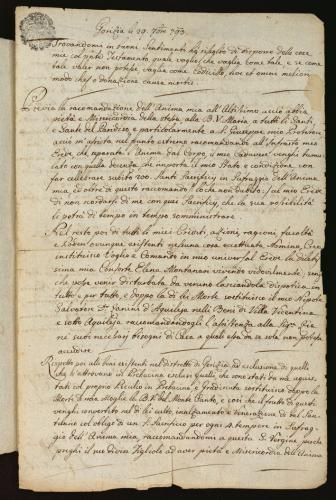 Gorizia li 29. 7bre 793
Trovandomi in buoni sentimenti hò risolto di disporre delle cose
mie col pnte Testamento quale voglio, che vaglia come tale, e se come
tale valer non potesse vaglia come Codicillo, over et omni meliori
modo
Previa la racomandazione dell'Anima mia all'Altissimo acciò abbia
pietà e Misericordia della stessa, alla B. V. Maria, a tutti li Santi,
e Sante del Paradiso e particolarmente a S. Giuseppe mio Protettore
acciò m'assista nel punto estremo racomandando all'infratto mio
Erede che separata l'Anima dal Corpo il mio Cadavere venghi tumu-
lato con quella decenza che importa il mio Stato e condizione, con
far celebrare subito 200. Santi Sacrificj in Suffragio dell'Anima
mia, ed oltre di questo raccomando il che non dubito, al mio Erede
di non scordarsi di me con quei Sacrificj, che la sua possibilità
li potrà di tempo in tempo somministrare.
Nel resto poi di tutti li miei Crediti, azioni, ragioni, facoltà
e Robbe ovunque esistenti nessuna cosa eccettuata Nomino,
instituisco Voglio e Comando in mio universal Erede la dilettis-
sima mia Consorte Elena Montanari vivendo vedovilmente, senza
che possi venir disturbata da veruno lasciandola dispotica in
tutto e per tutto, e doppo la di lei Morte sostituisco il mio Nipote
Salvator Zanini d'Aquileja nelli Beni di Villa Vicentina
e sotto Aquileja raccomandandogli l'assistenza alla Sigra Zia
nei suoi necessarj bisogni di Casa a quali essa da se sola non potesse
accudire
Rispetto poi alli beni esistenti nel distretto di Gorizia per esclusione di quelli
che s'attrovano in Precacina
tati col proprio Peculio in Precacina, e Gradiscuta sostituisco doppo la
Morte di mia Moglie la B. V. del Monte Santo, e così che il frutto di questi
venghi convertito nel di lei culto, inalzamento e venerazione di tal San-
tuario col obligo di un S. Sacrificio per ogni 4 tempora in Suffra-
gio dell'Anima mia, raccomandomi a questa S. Vergine perchè
preghi il suo divin Figliolo ad aver pietà e Misericordia dell'Anima